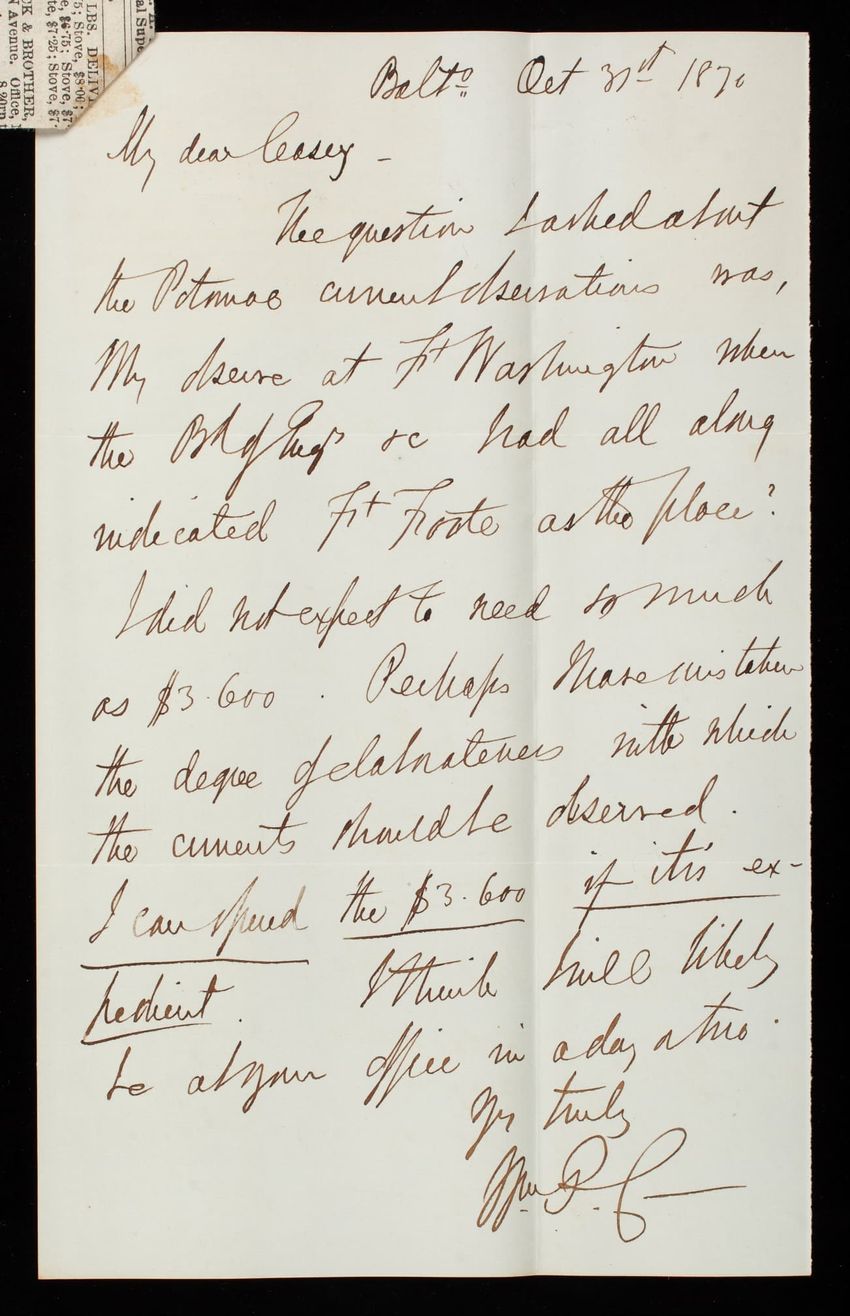 Balto. Oct 31st 1870
My dear Casey -
The question I asked about
the Potomac current observations was,
Why observe at Ft Washington when
the Bd of Engrs &c had all along
indicated Ft Foote as the place?
I did not expect to need so much
as $3.600. Perhaps I have mistaken
the degree of elaborateness with which
the currents should be observed.
I can spend the $3.600 if it is ex-
pedient. I think I will likely
be at your office in a day or two.
Yrs truly
Wm P. C
LBS. DELIV
5; Stove, $8.00;
e, $6.75; Stove, $7.
te, $7.25; Stove, $7.
CK & BROTHER,
Avenue. Office,